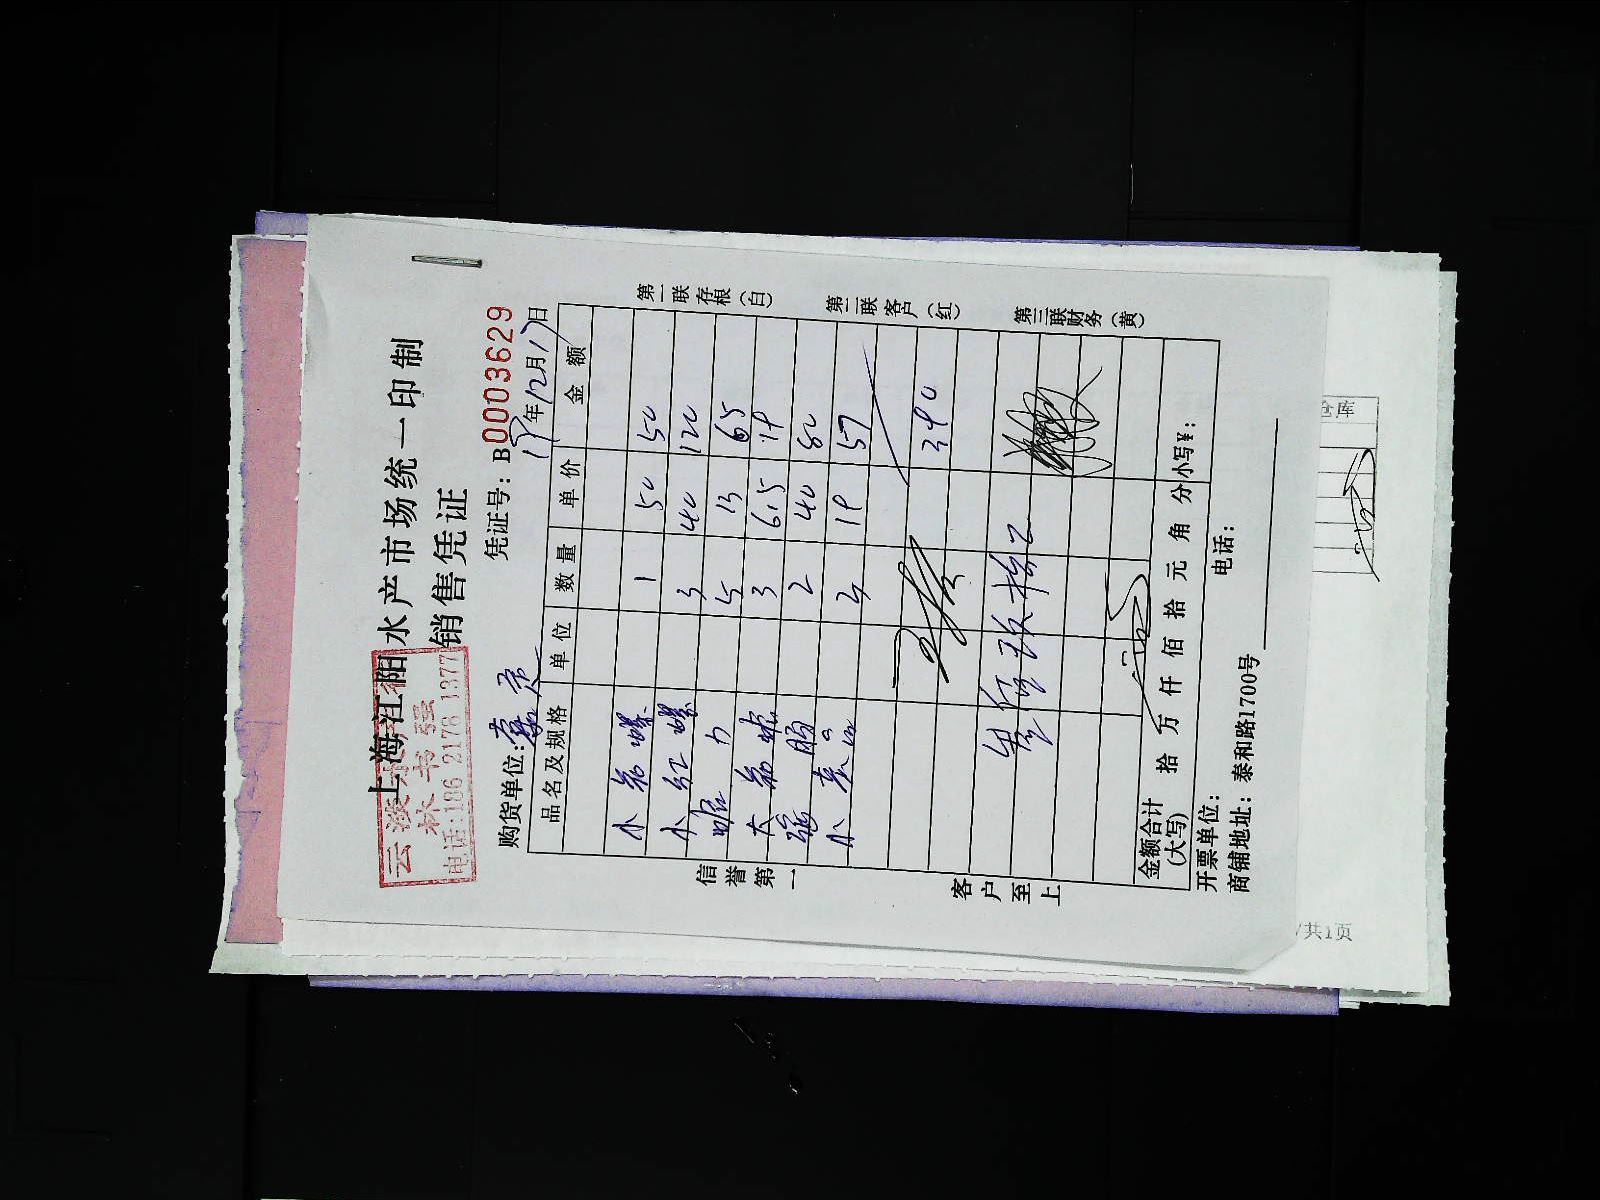 上海江阳水产市场统一印制
销售凭证
云淡水产
林书强
电话:186 2178 1377
凭证号: B0003629
购货单位:
年12月17日
品名及规格 单位 数量 单价 金额
小 螺 1 50 50
小红螺 3 40 120
5 13 65
大 3 6.5 19
2 40 80
小 3 19 57
390
叁佰玖拾元
金额合计(大写) 拾 万 仟 佰 拾 元 角 分 小写¥:
开票单位: 电话:
商铺地址: 泰和路1700号
信誉第一
客户至上
第一联存根(白)
第二联客户(红)
第三联财务(黄)
仓库
/共1页